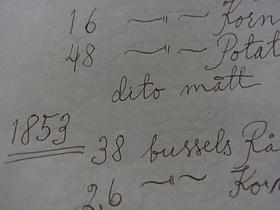 16 —〃— Korn
48 —〃— Potat
dito mått
1853 38 bussels Rå
26 —〃— Korn